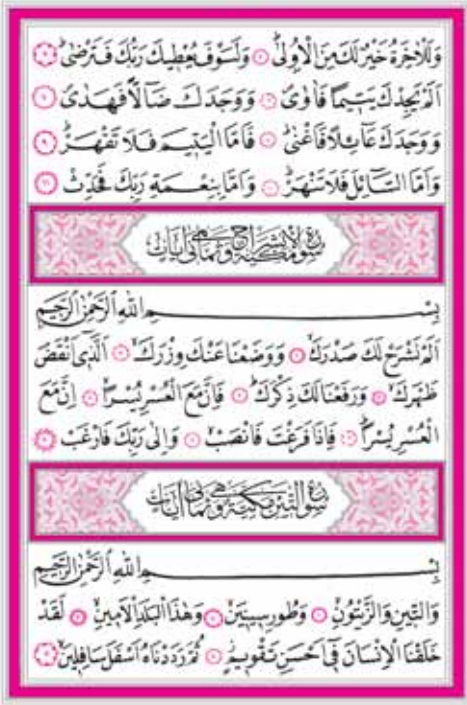 وَلَلْاٰخِرَةُ خَيْرٌ لَكَ مِنَ الْاُولٰىۜ ﴿٤﴾ وَلَسَوْفَ يُعْطٖيكَ رَبُّكَ فَتَرْضٰىۜ ﴿٥﴾
اَلَمْ يَجِدْكَ يَتٖيماً فَاٰوٰىۖ ﴿٦﴾ وَوَجَدَكَ ضَٓالاًّ فَهَدٰىۖ ﴿٧﴾
وَوَجَدَكَ عَٓائِلاً فَاَغْنٰىۜ ﴿٨﴾ فَاَمَّا الْيَتٖيمَ فَلَا تَقْهَرْۜ ﴿٩﴾
وَاَمَّا السَّٓائِلَ فَلَا تَنْهَرْۜ ﴿١٠﴾ وَاَمَّا بِنِعْمَةِ رَبِّكَ فَحَدِّثْ ﴿١١﴾
سُورَةُ الْاِنْشِرَاحِ مَكِّيَّةٌ وَهِيَ ثَمَانِي اٰيَاتٍ
بِسْمِ اللّٰهِ الرَّحْمٰنِ الرَّحٖيمِ
اَلَمْ نَشْرَحْ لَكَ صَدْرَكَۙ ﴿١﴾ وَوَضَعْنَا عَنْكَ وِزْرَكَۙ ﴿٢﴾ اَلَّذٖٓي اَنْقَضَ
ظَهْرَكَۙ ﴿٣﴾ وَرَفَعْنَا لَكَ ذِكْرَكَۜ ﴿٤﴾ فَاِنَّ مَعَ الْعُسْرِ يُسْراًۙ ﴿٥﴾ اِنَّ مَعَ
الْعُسْرِ يُسْراًۜ ﴿٦﴾ فَاِذَا فَرَغْتَ فَانْصَبْۙ ﴿٧﴾ وَاِلٰى رَبِّكَ فَارْغَبْ ﴿٨﴾
سُورَةُ التّٖينِ مَكِّيَّةٌ وَهِيَ ثَمَانِي اٰيَاتٍ
بِسْمِ اللّٰهِ الرَّحْمٰنِ الرَّحٖيمِ
وَالتّٖينِ وَالزَّيْتُونِۙ ﴿١﴾ وَطُورِ سٖينٖينَۙ ﴿٢﴾ وَهٰذَا الْبَلَدِ الْاَمٖينِۙ ﴿٣﴾ لَقَدْ
خَلَقْنَا الْاِنْسَانَ فٖٓي اَحْسَنِ تَقْوٖيمٍۘ ﴿٤﴾ ثُمَّ رَدَدْنَاهُ اَسْفَلَ سَافِلٖينَۙ ﴿٥﴾